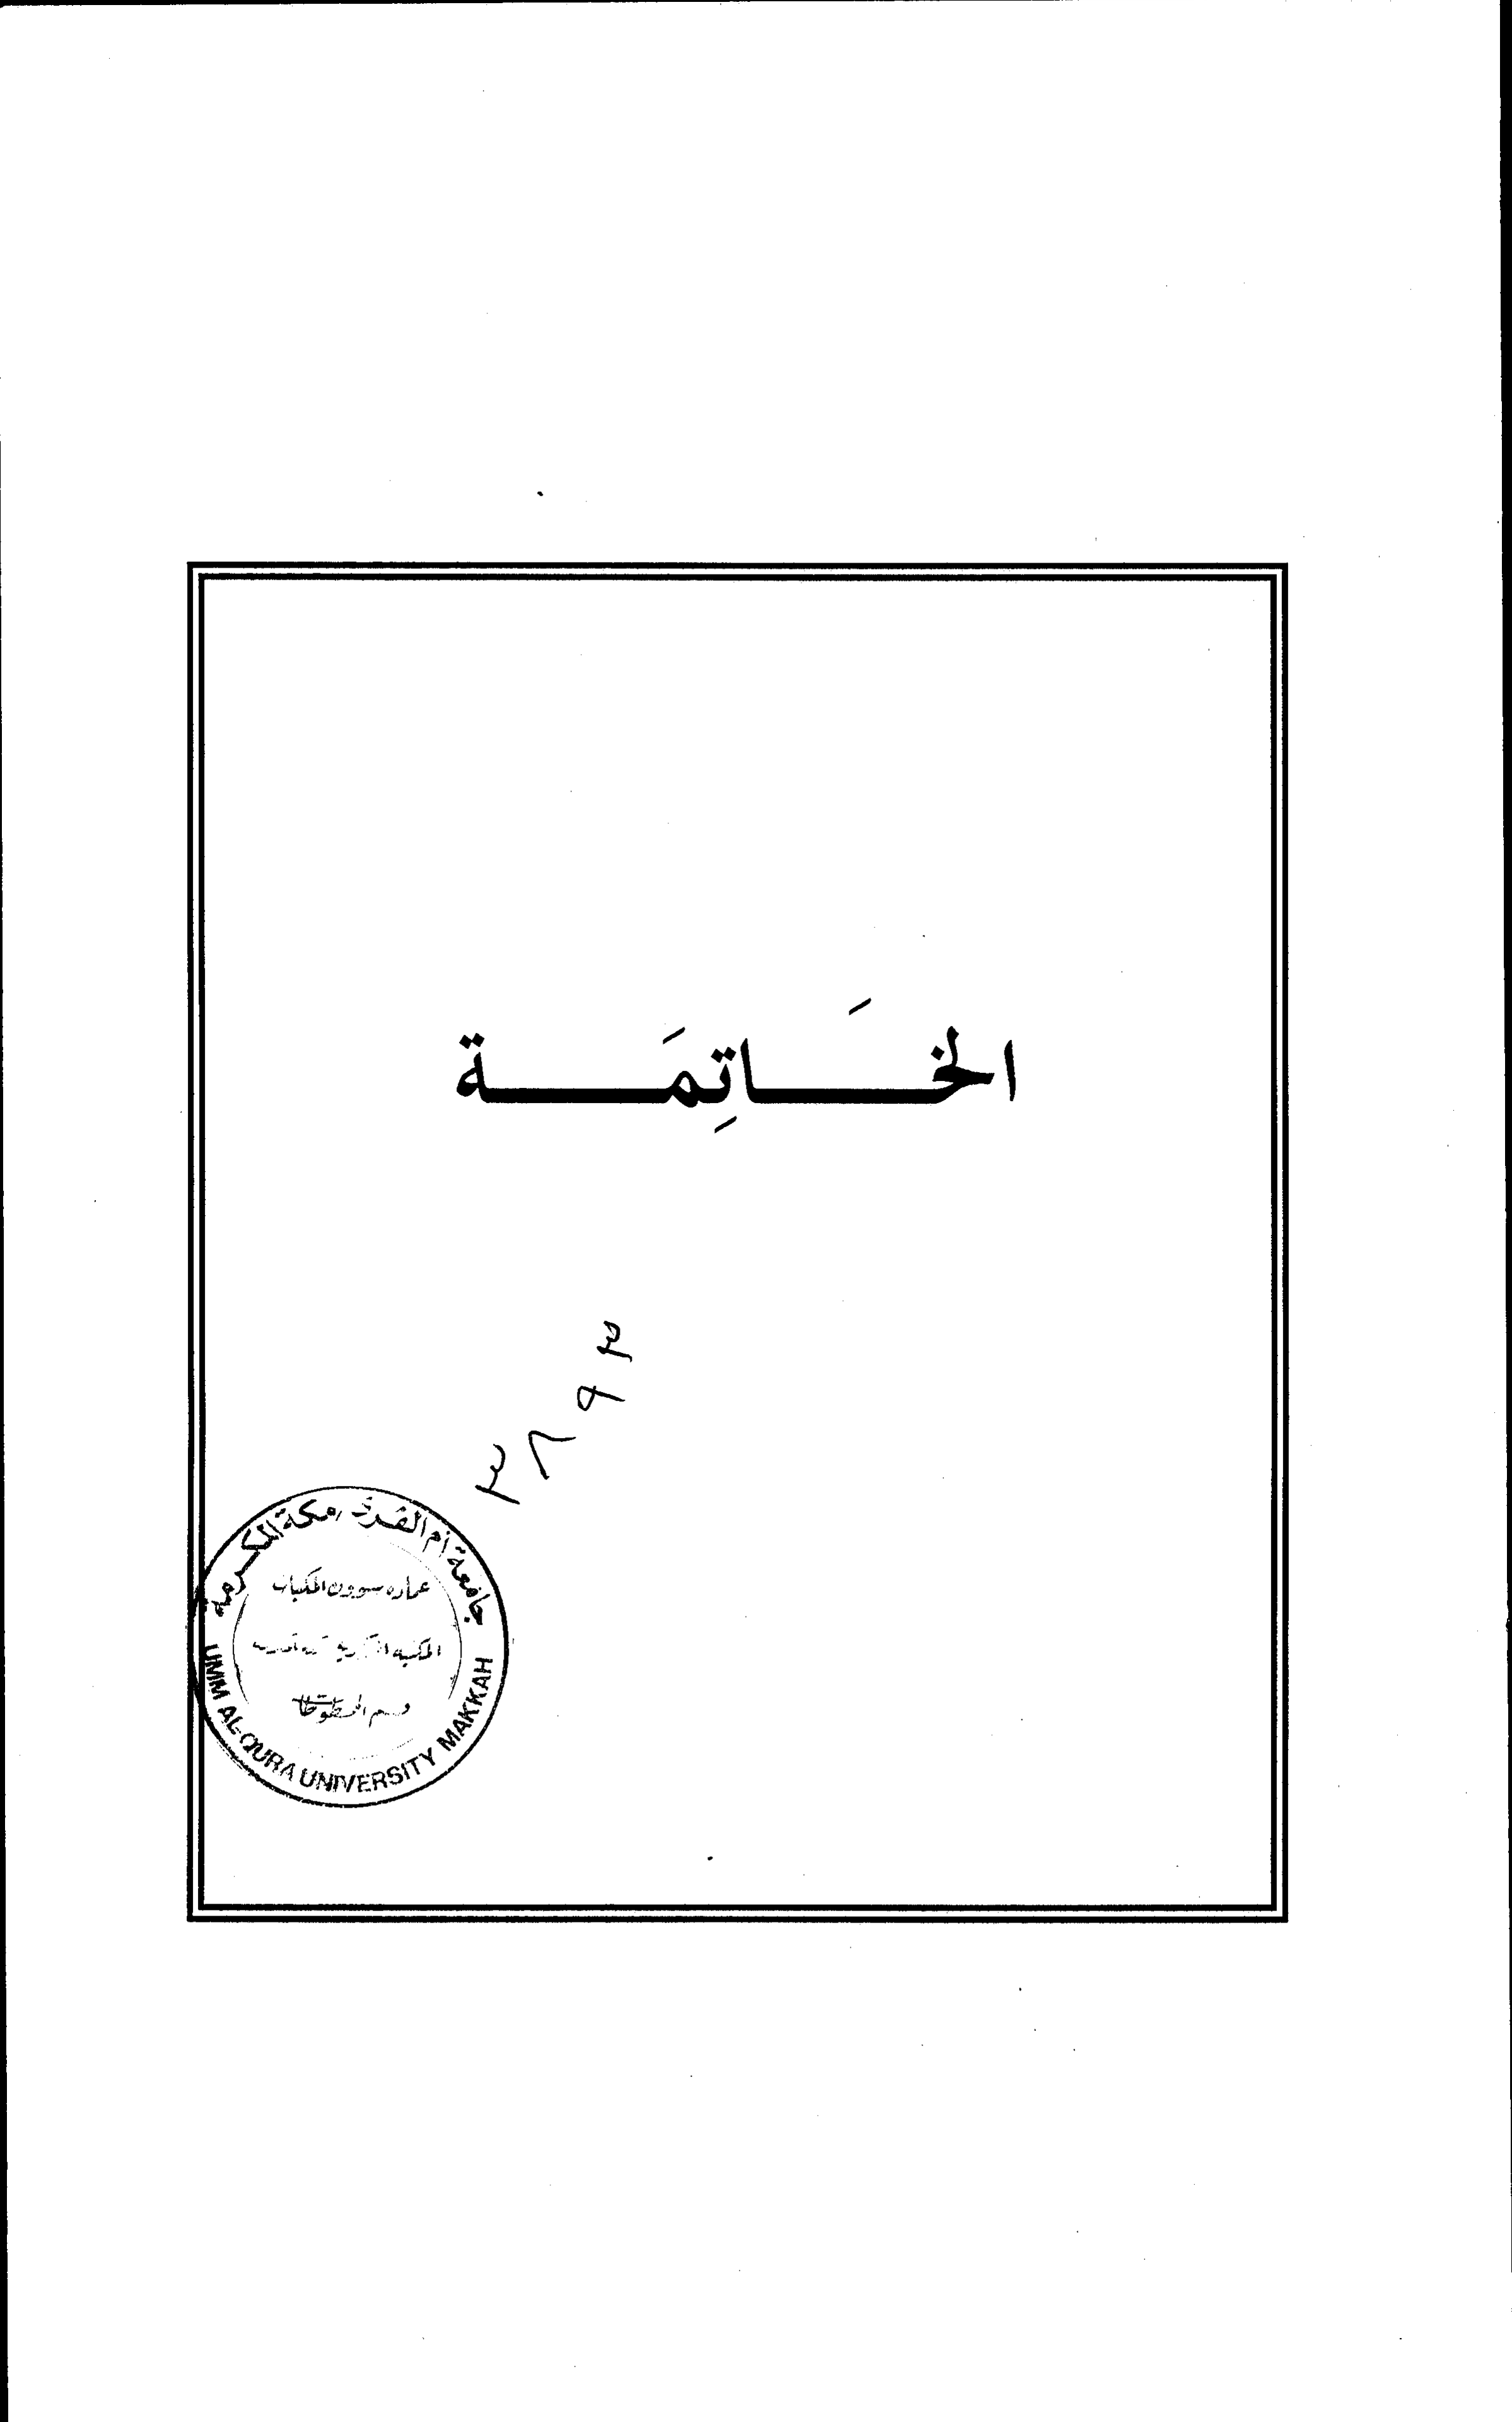 الخَـاتِمَـة
٣٨٩٣
جامعة أم القرى مكة المكرمة
عمادة شؤون المكتبات
المكتبة المركزية
قسم المخطوطات
UMM AL-QURA UNIVERSITY MAKKAH